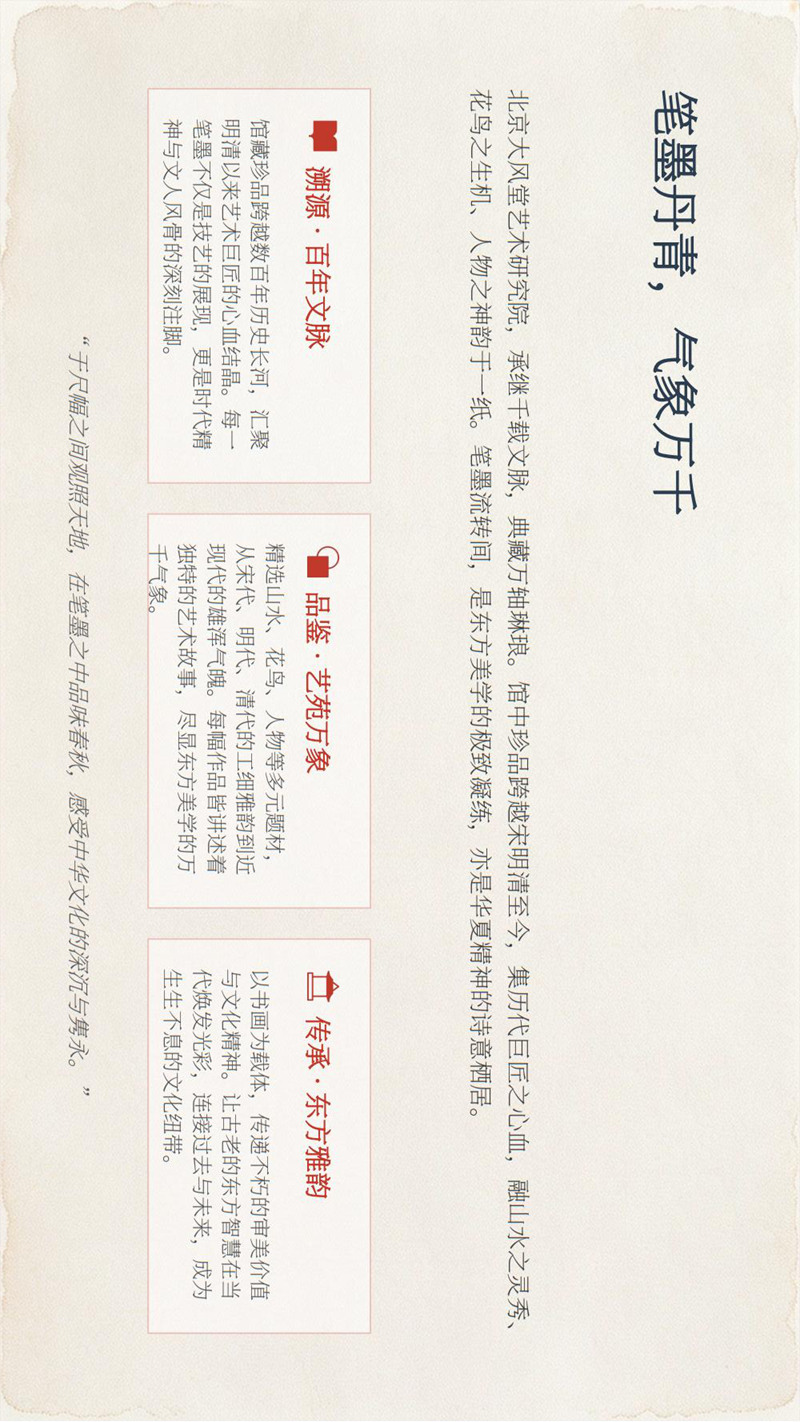 笔墨丹青，气象万千
北京大风堂艺术研究院，承继千载文脉，典藏万轴琳琅。馆中珍品跨越宋明清至今，集历代巨匠之心血，融山水之灵秀、
花鸟之生机、人物之神韵于一纸。笔墨流转间，是东方美学的极致凝练，亦是华夏精神的诗意栖居。
溯源·百年文脉
馆藏珍品跨越数百年历史长河，汇聚
明清以来艺术巨匠的心血结晶。每一
笔墨不仅是技艺的展现，更是时代精
神与文人风骨的深刻注脚。
品鉴·艺苑万象
精选山水、花鸟、人物等多元题材，
从宋代、明代、清代的工细雅韵到近
现代的雄浑气魄。每幅作品皆讲述着
独特的艺术故事，尽显东方美学的万
千气象。
传承·东方雅韵
以书画为载体，传递不朽的审美价值
与文化精神。让古老的东方智慧在当
代焕发光彩，连接过去与未来，成为
生生不息的文化纽带。
“于尺幅之间观照天地，在笔墨之中品味春秋，感受中华文化的深沉与隽永。”